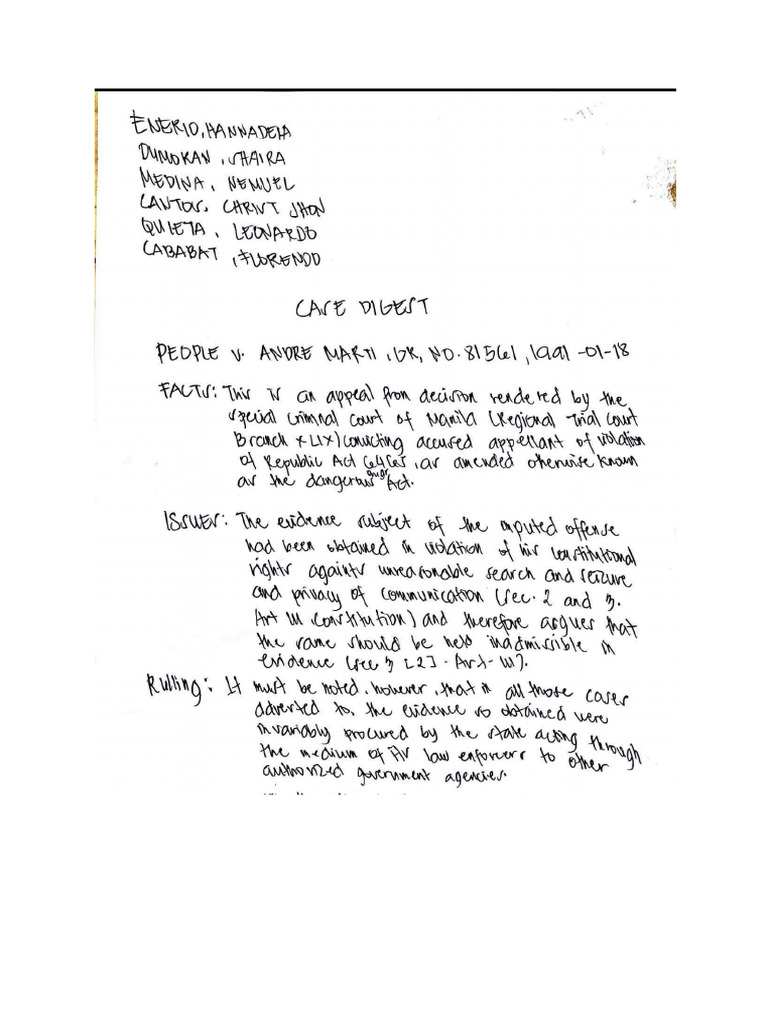 ENERIO, HANNADEIA
DUMOKAN, SHAIRA
MEDINA, NEMUEL
CANTOS, CHRIST JHON
QUIETA, LEONARDO
CABABAT, FLORENDO
CASE DIGEST
PEOPLE v. ANDRE MARTI, GR, NO. 81561, 1991-01-18
FACTS: This is an appeal from decision rendered by the
special Criminal Court of Manila (Regional Trial Court
Branch XLIX) convicting accused appellant of violation
of Republic Act 6425, as amended otherwise known
as the dangerous drugs Act.
ISSUES: The evidence subject of the imputed offense
had been obtained in violation of his constitutional
rights againts unreasonable search and seizure
and privacy of communication (sec. 2 and 3.
Art III, constitution) and therefore argues that
the same should be held inadmissible in
evidence (sec 3 [2] - Art - III).
Rulling: It must be noted, however, that in all those cases
adverted to, the evidence so obtained were
invariably procured by the state acting through
the medium of its law enforcers to other
authorized government agencies.